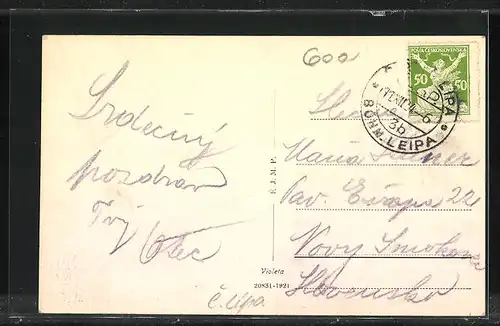 600
POŠTA ČESKOSLOVENSKÁ
50 50
LÍPA
3b
BÖHM. LEIPA
Srdečný
pozdrav
Tvůj
Otec
Pav. Europa 22
Nový Smokovec
Slovensko
F. J. M. P.
Violeta
20831-1921
Č. Lípa